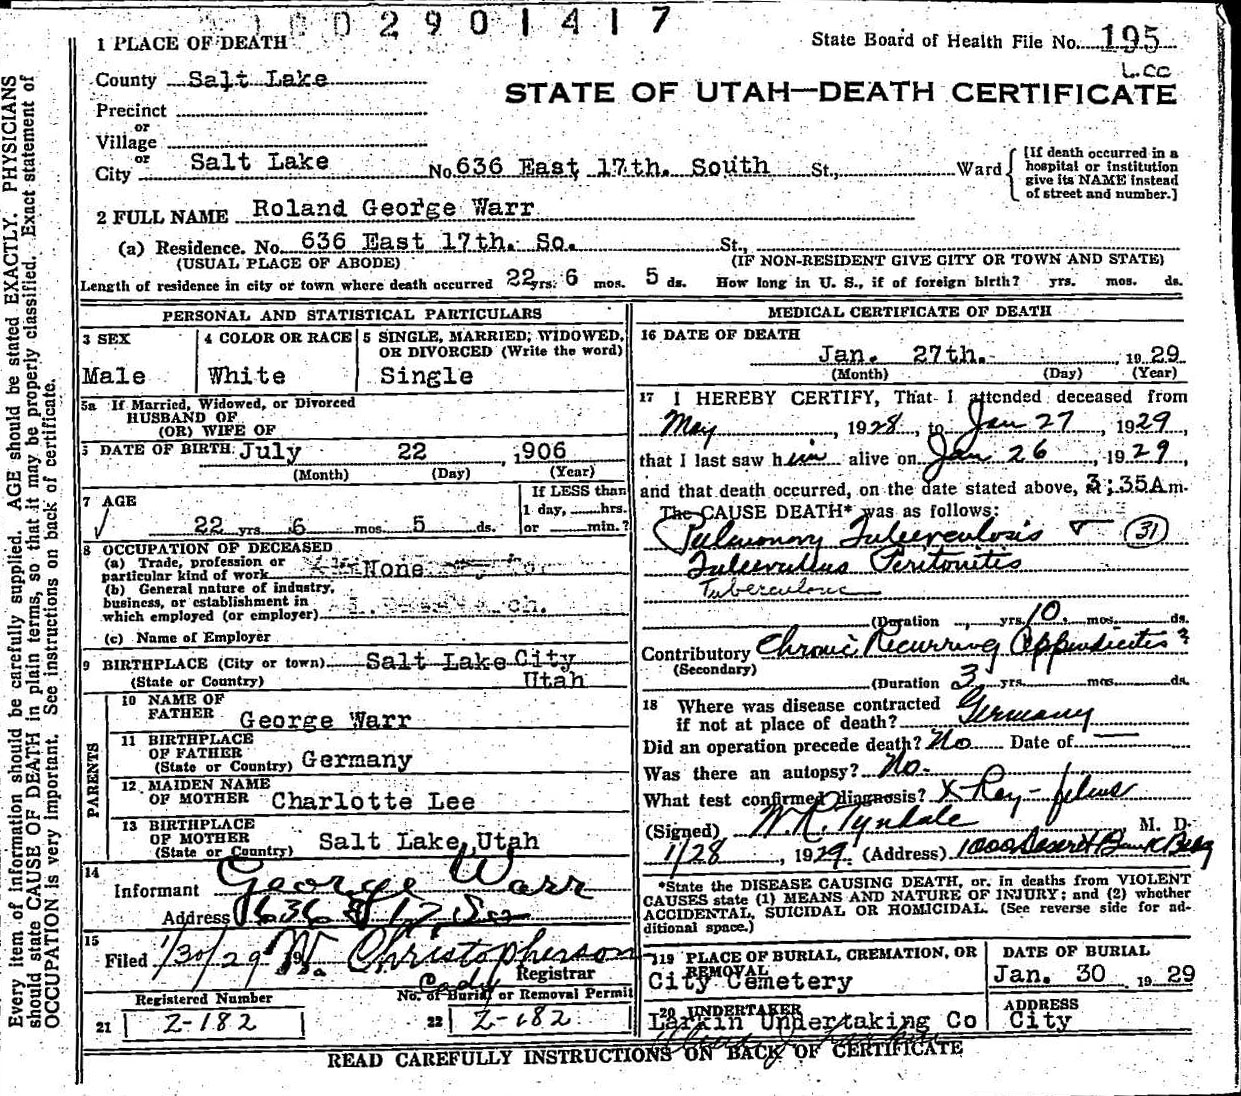 2901417
1 PLACE OF DEATH
State Board of Health File No. 195
L.CC
County Salt Lake
STATE OF UTAH—DEATH CERTIFICATE
Precinct
or
Village
or
City Salt Lake No. 636 East 17th. South St., Ward
[If death occurred in a hospital or institution give its NAME instead of street and number.]
2 FULL NAME Roland George Warr
(a) Residence. No. 636 East 17th. So. St.,
(USUAL PLACE OF ABODE) (IF NON-RESIDENT GIVE CITY OR TOWN AND STATE)
Length of residence in city or town where death occurred 22 yrs. 6 mos. 5 ds. How long in U. S., if of foreign birth? yrs. mos. ds.
PERSONAL AND STATISTICAL PARTICULARS
3 SEX
Male
4 COLOR OR RACE
White
5 SINGLE, MARRIED, WIDOWED, OR DIVORCED (Write the word)
Single
5a If Married, Widowed, or Divorced
HUSBAND OF
(OR) WIFE OF
DATE OF BIRTH July 22, 1906
(Month) (Day) (Year)
7 AGE
22 yrs. 6 mos. 5 ds.
If LESS than
1 day, hrs.
or min.?
8 OCCUPATION OF DECEASED
(a) Trade, profession or
particular kind of work None
(b) General nature of industry,
business, or establishment in
which employed (or employer)
(c) Name of Employer
9 BIRTHPLACE (City or town) Salt Lake City
(State or Country) Utah
PARENTS
10 NAME OF
FATHER George Warr
11 BIRTHPLACE
OF FATHER
(State or Country) Germany
12 MAIDEN NAME
OF MOTHER Charlotte Lee
13 BIRTHPLACE
OF MOTHER
(State or Country) Salt Lake, Utah
14
Informant George Warr
Address 636 E 17 So
15
Filed 1/30/29 W. Christopherson
Registrar
Registered Number
21 Z-182
No. of Burial or Removal Permit
22 Z-182
MEDICAL CERTIFICATE OF DEATH
16 DATE OF DEATH
Jan. 27th. , 1929
(Month) (Day) (Year)
17 I HEREBY CERTIFY, That I attended deceased from
May , 1928, to Jan 27 , 1929,
that I last saw him alive on Jan 26 , 1929,
and that death occurred, on the date stated above, at 3:35A m.
The CAUSE DEATH* was as follows:
Pulmonary Tuberculosis (31)
Tuberculous Peritonitis
Tuberculous
(Duration yrs. 10 mos. ds.
Contributory Chronic Recurring Appendicitis ?
(Secondary)
(Duration 3 yrs. mos. ds.
18 Where was disease contracted
if not at place of death? Germany
Did an operation precede death? No Date of
Was there an autopsy? No.
What test confirmed diagnosis? X-Ray-films
(Signed) W. R. Tyndale M. D.
1/28 , 1929. (Address) 1000 Deseret Bank Bldg
*State the DISEASE CAUSING DEATH, or, in deaths from VIOLENT
CAUSES state (1) MEANS AND NATURE OF INJURY; and (2) whether
ACCIDENTAL, SUICIDAL OR HOMICIDAL. (See reverse side for additional space.)
19 PLACE OF BURIAL, CREMATION, OR
REMOVAL
City Cemetery
DATE OF BURIAL
Jan. 30 1929
20 UNDERTAKER
Larkin Undertaking Co
ADDRESS
City
READ CAREFULLY INSTRUCTIONS ON BACK OF CERTIFICATE
Every item of information should be carefully supplied. AGE should be stated EXACTLY. PHYSICIANS
should state CAUSE OF DEATH in plain terms, so that it may be properly classified. Exact statement of
OCCUPATION is very important. See instructions on back of certificate.